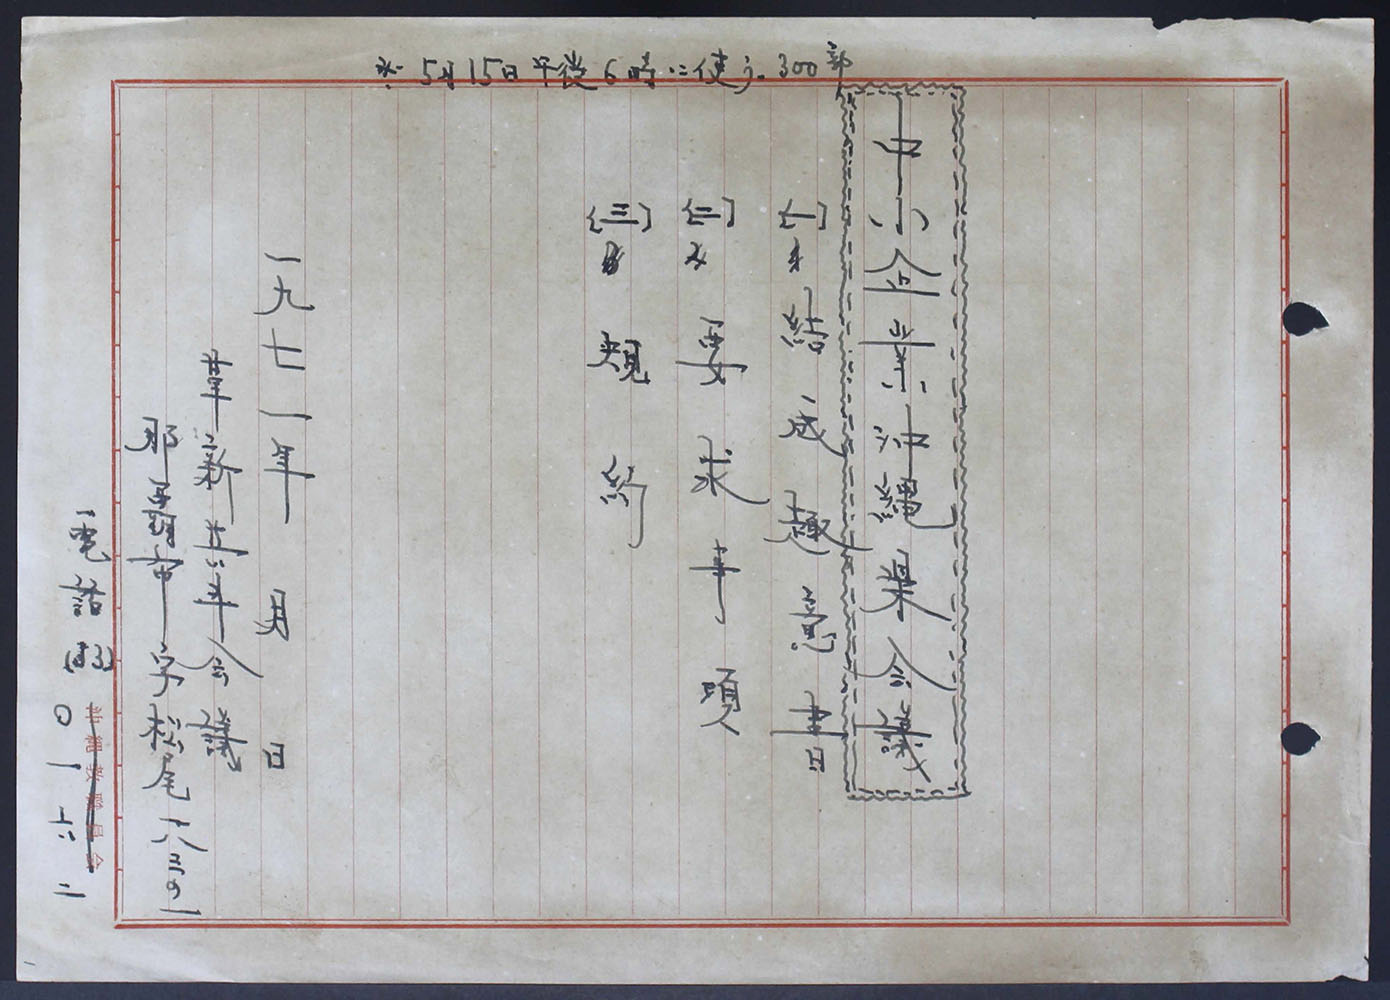 ※ 5月15日午後6時に使う. 300部
中小企業沖縄渠会議
[一] 結成趣意書
[二] 要求事項
[三] 規約
一九七一年 月 日
革新共斗会議
那覇市字松尾一八三の一
電話 〇一六二